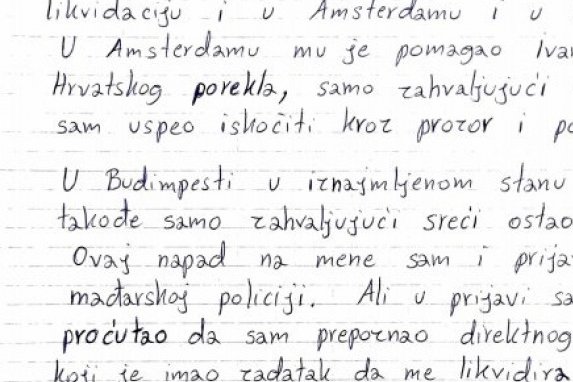 likvidaciju i u Amsterdamu i u
U Amsterdamu mu je pomagao Ivan
Hrvatskog porekla, samo zahvaljujući
sam uspeo iskočiti kroz prozor i po
U Budimpešti u iznajmljenom stanu
takođe samo zahvaljujući sreći ostao
Ovaj napad na mene sam i prija
mađarskoj policiji. Ali u prijavi sa
proćutao da sam prepoznao direktnog
koji je imao zadatak da me likvidira